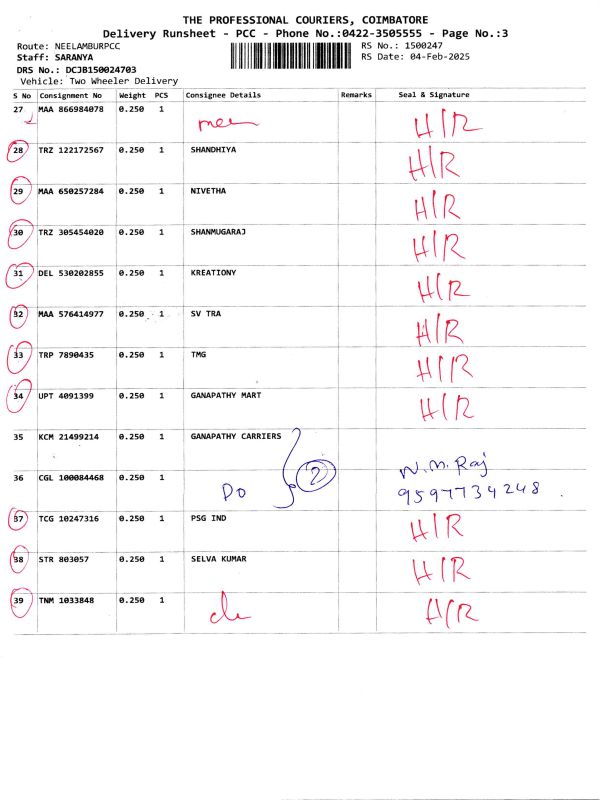 THE PROFESSIONAL COURIERS, COIMBATORE
Delivery Runsheet - PCC - Phone No.:0422-3505555 - Page No.:3
Route: NEELAMBURPCC RS No.: 1500247
Staff: SARANYA RS Date: 04-Feb-2025
DRS No.: DCJB150024703
Vehicle: Two Wheeler Delivery
S No Consignment No Weight PCS Consignee Details Remarks Seal & Signature
27 MAA 866984078 0.250 1 H/R
28 TRZ 122172567 0.250 1 SHANDHIYA H/R
29 MAA 650257284 0.250 1 NIVETHA H/R
30 TRZ 305454020 0.250 1 SHANMUGARAJ H/R
31 DEL 530202855 0.250 1 KREATIONY H/R
32 MAA 576414977 0.250 1 SV TRA H/R
33 TRP 7890435 0.250 1 TMG H/R
34 UPT 4091399 0.250 1 GANAPATHY MART H/R
35 KCM 21499214 0.250 1 GANAPATHY CARRIERS
36 CGL 100084468 0.250 1 DO 2 N.M. Raj
9597734248
37 TCG 10247316 0.250 1 PSG IND H/R
38 STR 803057 0.250 1 SELVA KUMAR H/R
39 TNM 1033848 0.250 1 H/R